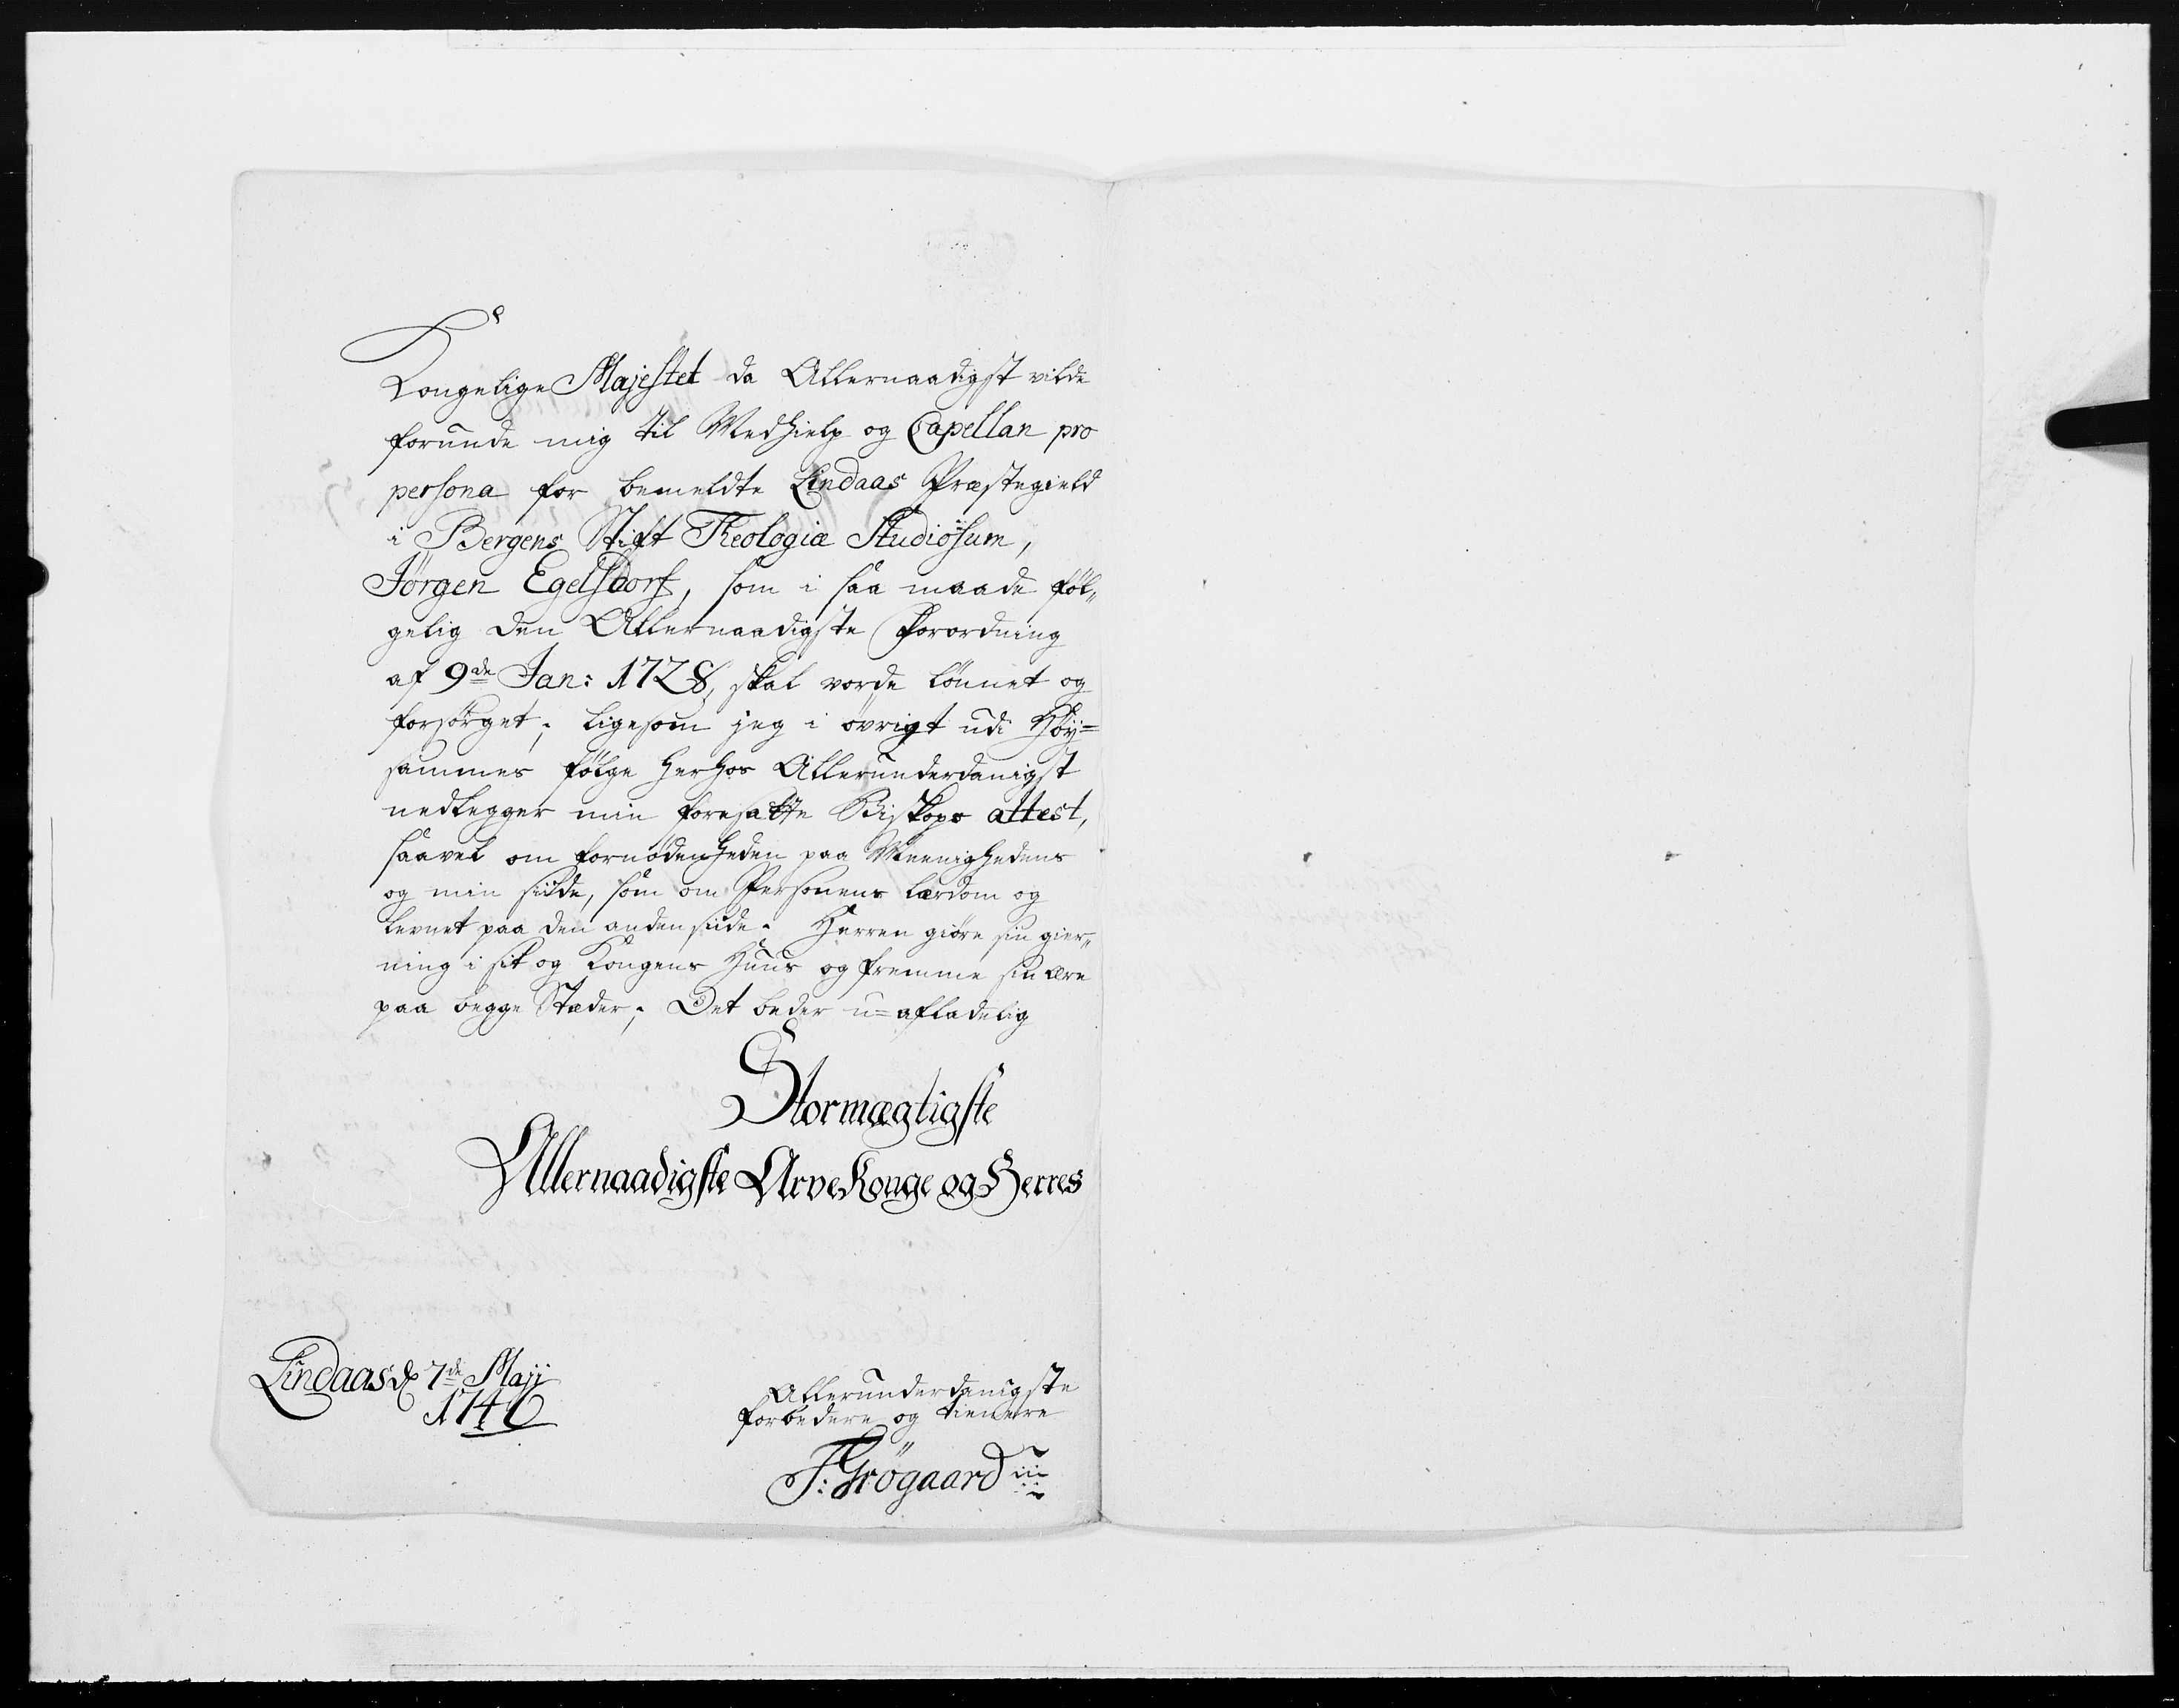 Kongelige Majestet da Allernaadigst vilde
forunde mig til Medhielp og Capellan pro
persona for bemeldte Lindaas Præstegield
i Bergens Stift Theologiæ Studiosum,
Jörgen Egelsdorf, som i saa maade föl„
gelig den Allernaadigste Forordning
af 9de Jan: 1728, skal vorde lönnet og
forsörget; ligesom jeg i övrigt udi Höy=
sammes fölge herhos Allerunderdanigst
nedlegger min foresatte Biskops attest,
saavel om fornödenheden paa Meenighedens
og min siide, som om Personens lærdom og
levnet paa den anden siide. Herren giöre sin gier„
ning i sit og Kongens Huus og fremme sin ære
paa begge Stæder; Det beder u=afladelig
Stormægtigste
Allernaadigste Arve Konge og Herres
Lindaas d 7de Maji
1746
Allerunderdanigste
forbedere og tienere
J: Grögaard